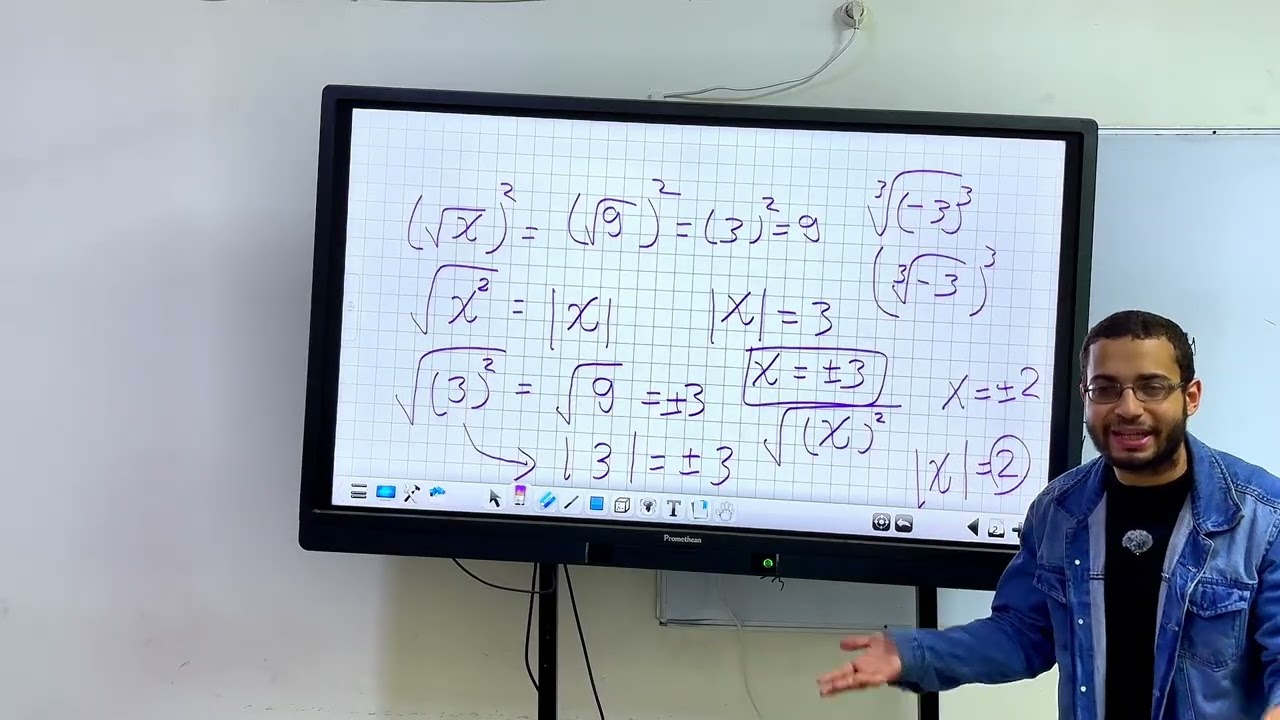 (√x)² = (√9)² = (3)² = 9
∛(-3)³
(∛-3)³
√x² = |x|
|x| = 3
√(3)² = √9 = ±3
x = ±3
x = ±2
√(x)²
|3| = ±3
|x| = 2
T
2
Promethean